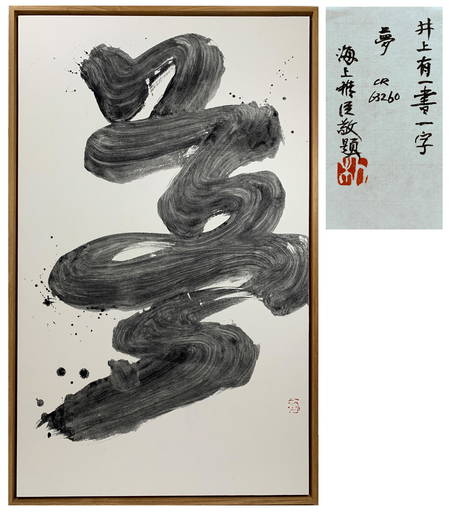 夢
井上有一書一字
夢
CR
63260
海上雅臣敬題